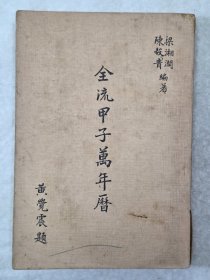 梁湘潤
陳毅青 編著
全流甲子萬年曆
黃覺震題